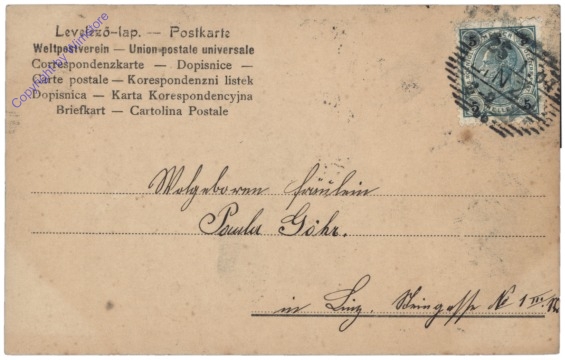 Levelező-lap. — Postkarte
Weltpostverein — Union postale universelle
Correspondenzkarte — Dopisnice —
Carte postale — Korespondenzni listek
Dopisnica — Karta Korespondencyjna
Briefkart — Cartolina Postale
Wolgeboren Fräulein
Paula Göhr.
in Linz, Steingasse № 1 III.
5 5
LINZ